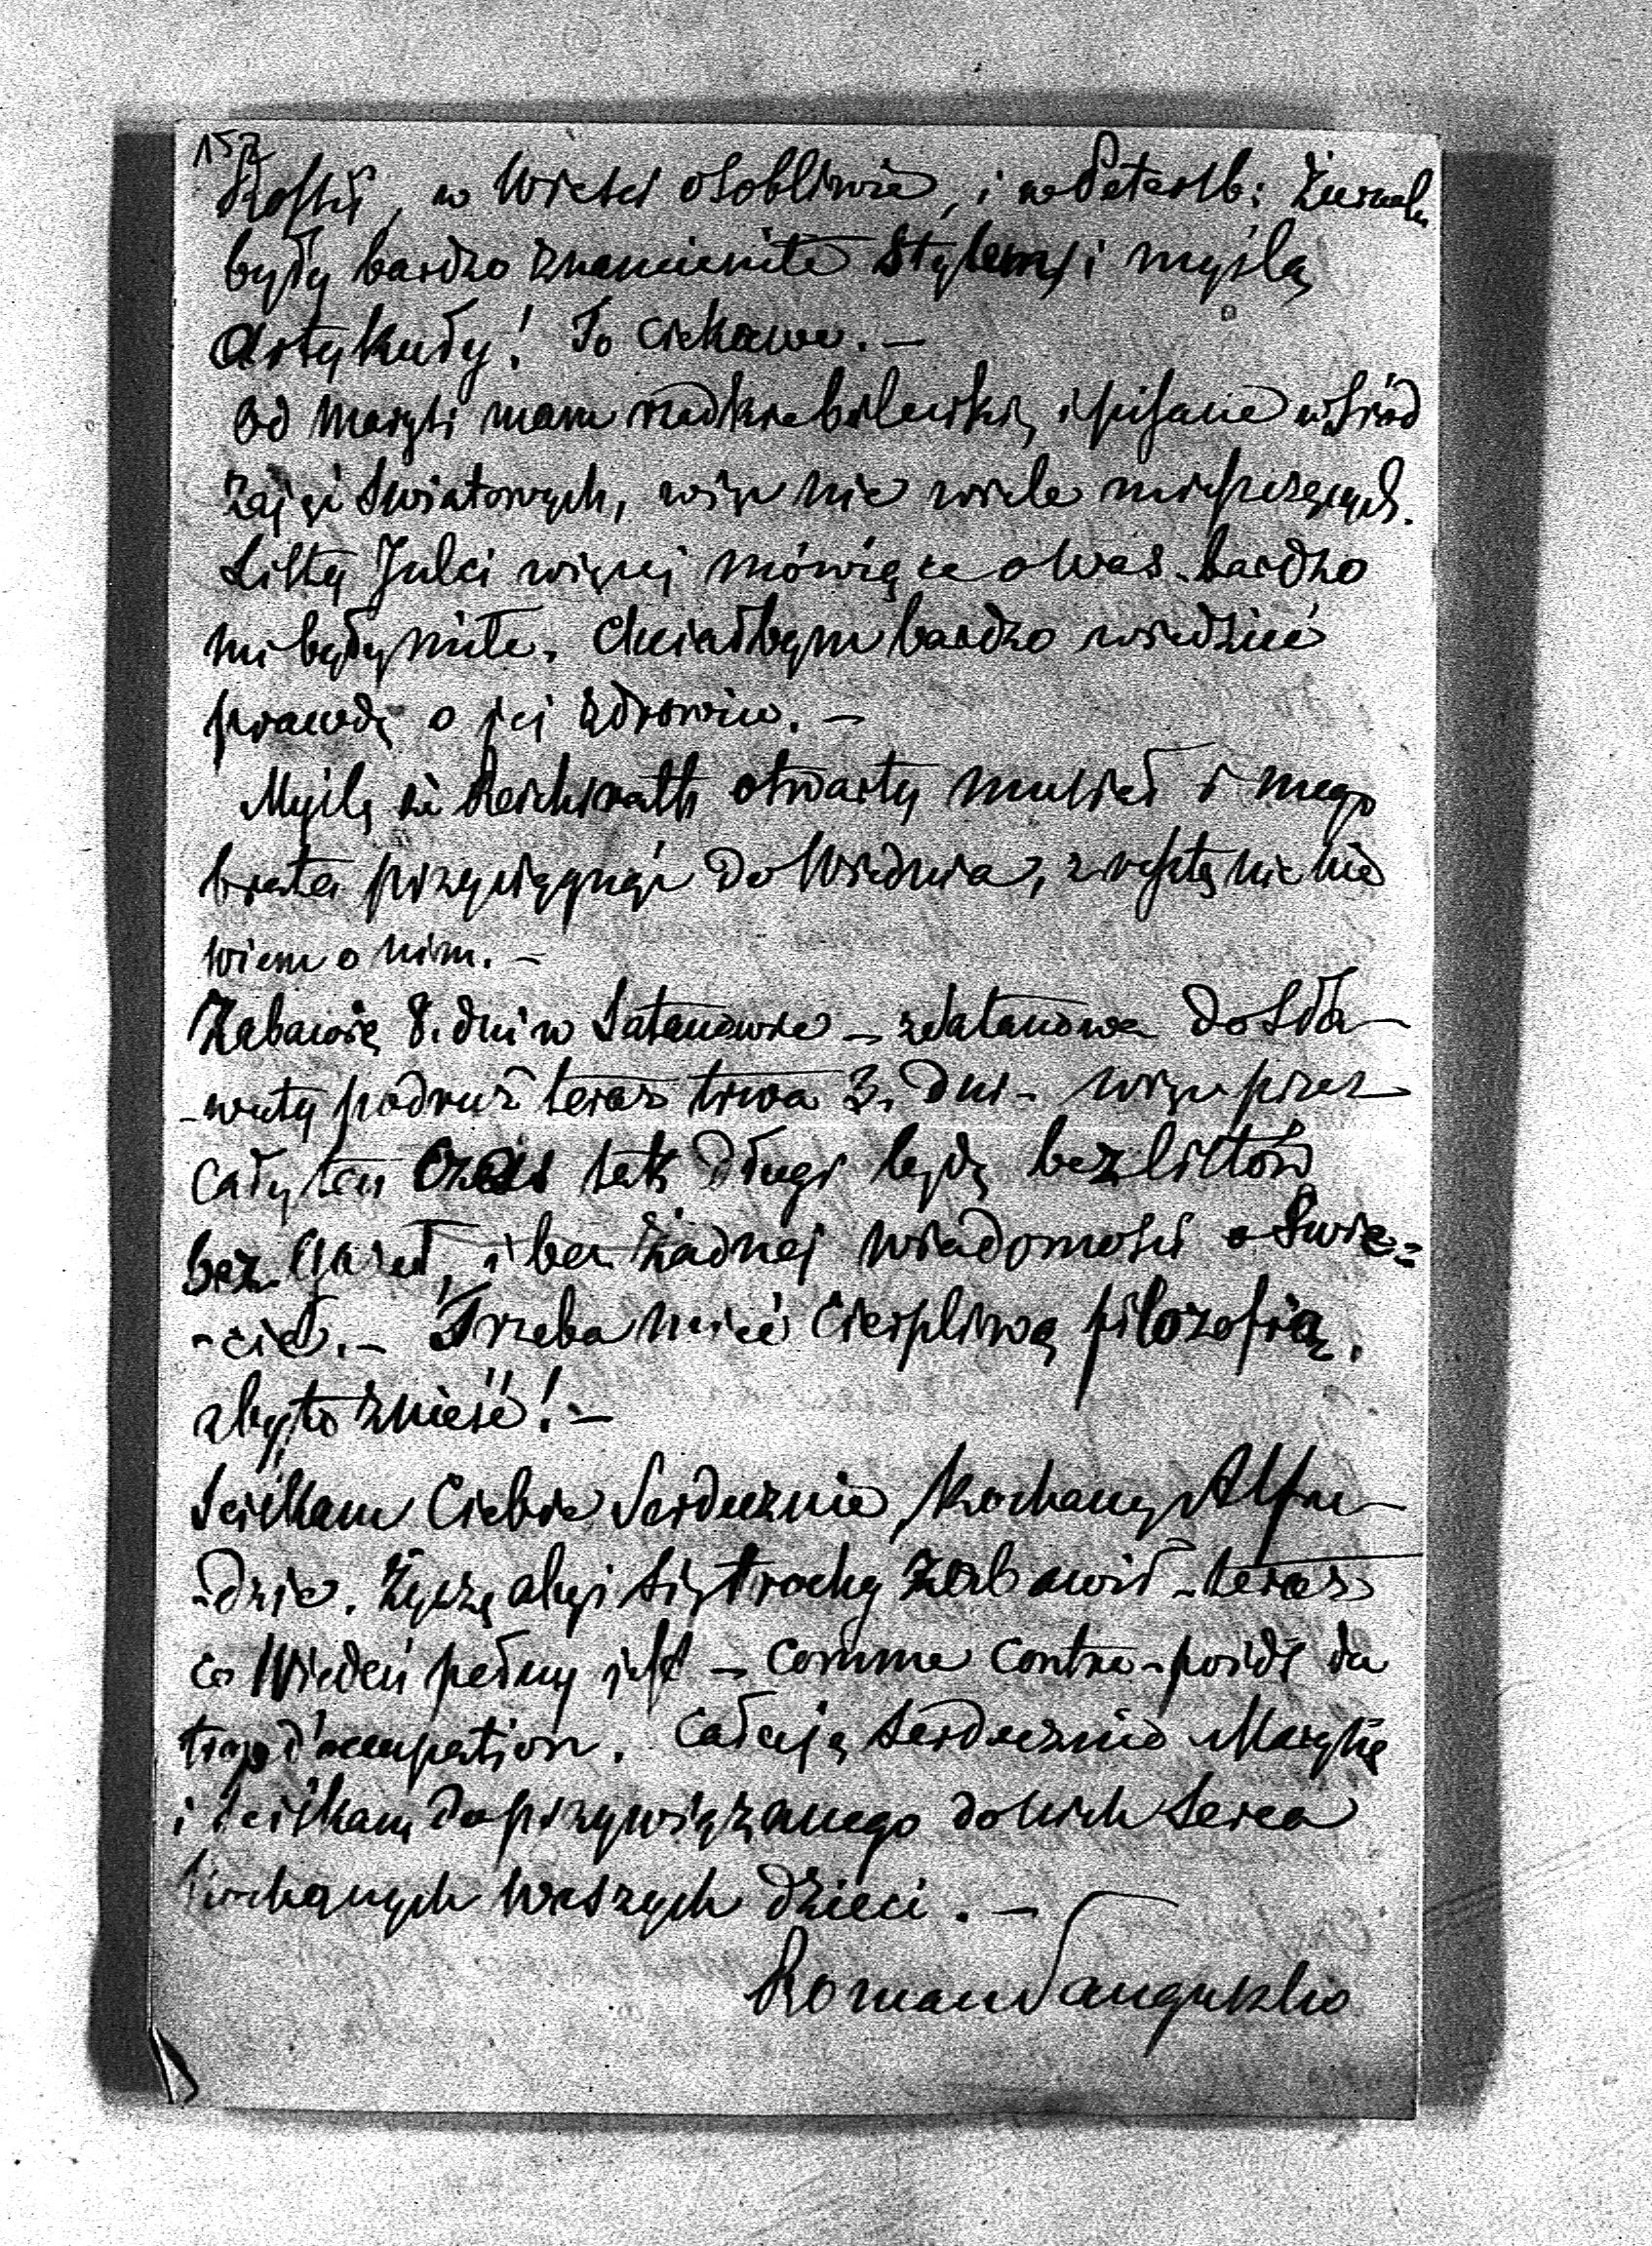 157
Rossii, w Wiesci osobliwie, i w Petersb: Żurnalu
były bardzo znamienite stylem i myślą
artykuły! To ciekawe. —
Od Maryli mam rzadkie bileciki, i pisane wśród
zajęć światowych, więc nie wiele
Listy Julci więcej mówiące o Was bardzo
mi były miłe. Chciałbym bardzo wiedzieć
prawdę o jej zdrowiu. —
Myślę że Reichsrath otwarty musiał i mego
brata przyciągnąć do Wiednia, zresztą nic nie
wiem o nim. —
Zabawię 8. dni w Satanowie — z Satanowa do Sła-
-wuty podróż teraz trwa 3. dni - więc przez
cały ten czas tak długi będę bez listów
bez Gazet, i bez żadnej wiadomości o Swie=
-cie. — Trzeba mieć cierpliwą filozofią,
aby to znieść! —
Sciskam Ciebie serdecznie, kochany Alfre-
-dzie. Życzę abyś się trochę zabawił - teraz
co Wiedeń pełny jest — comme contre-poids du
trop d'occupation. Całuję serdecznie Marynię
i sciskam do przywiązanego do nich serca
kochanych Waszych dzieci. —
Roman Sanguszko